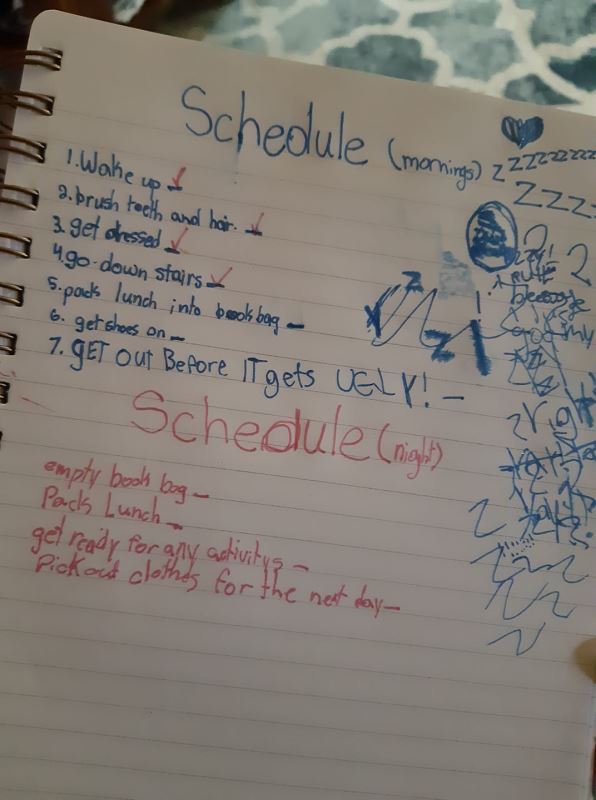 Schedule (mornings)
zzzzzzzzzz
zzzz
1. Wake up
2. brush teeth and hair.
3. get dressed
4. go down stairs
5. pack lunch into book bag
6. get shoes on
7. GET OUT Before IT gets UGLY!
Schedule (night)
empty book bag
Pack Lunch
get ready for any activitys
Pick out clothes for the next day